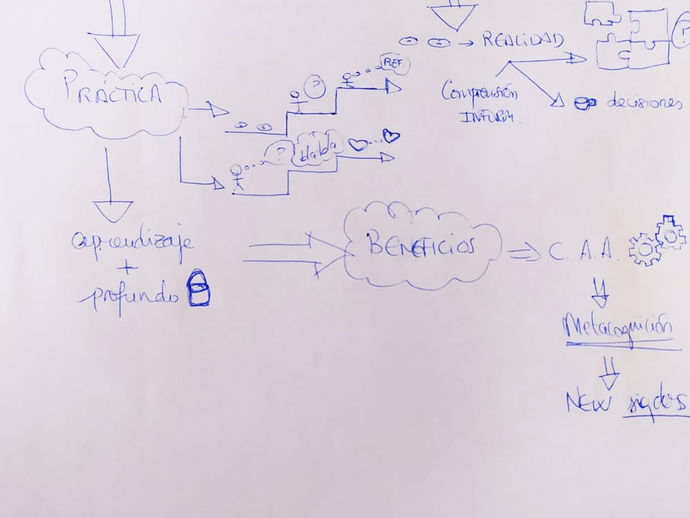 REALIDAD
PRÁCTICA
REF
?
Comprensión
INFORM.
decisiones
?
bla bla
aprendizaje
+
profundo
BENEFICIOS
C. A. A.
Metacognición
NEW